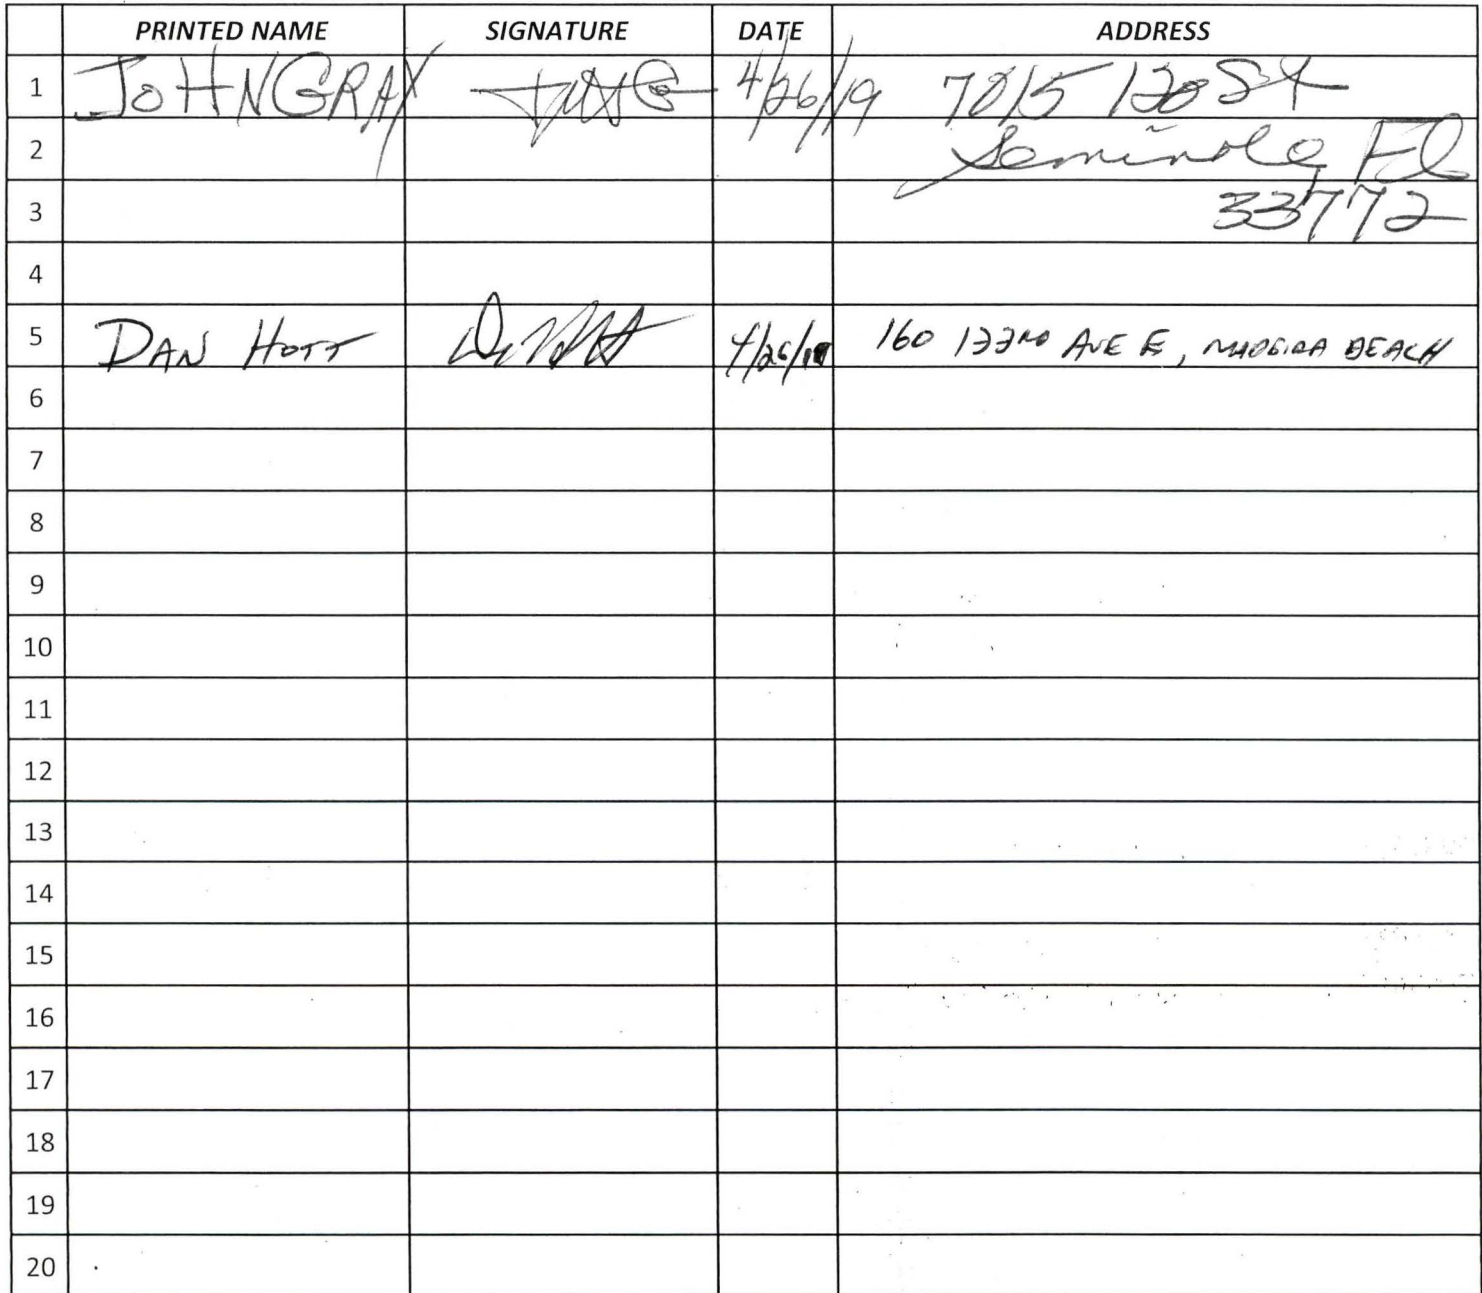 PRINTED NAME SIGNATURE DATE ADDRESS
1 JOHN GRAY 4/26/19 7815 120 St
2 Seminole, Fl
3 33772
4
5 DAN HOTT 4/26/19 160 133RD AVE E, MADEIRA BEACH
6
7
8
9
10
11
12
13
14
15
16
17
18
19
20